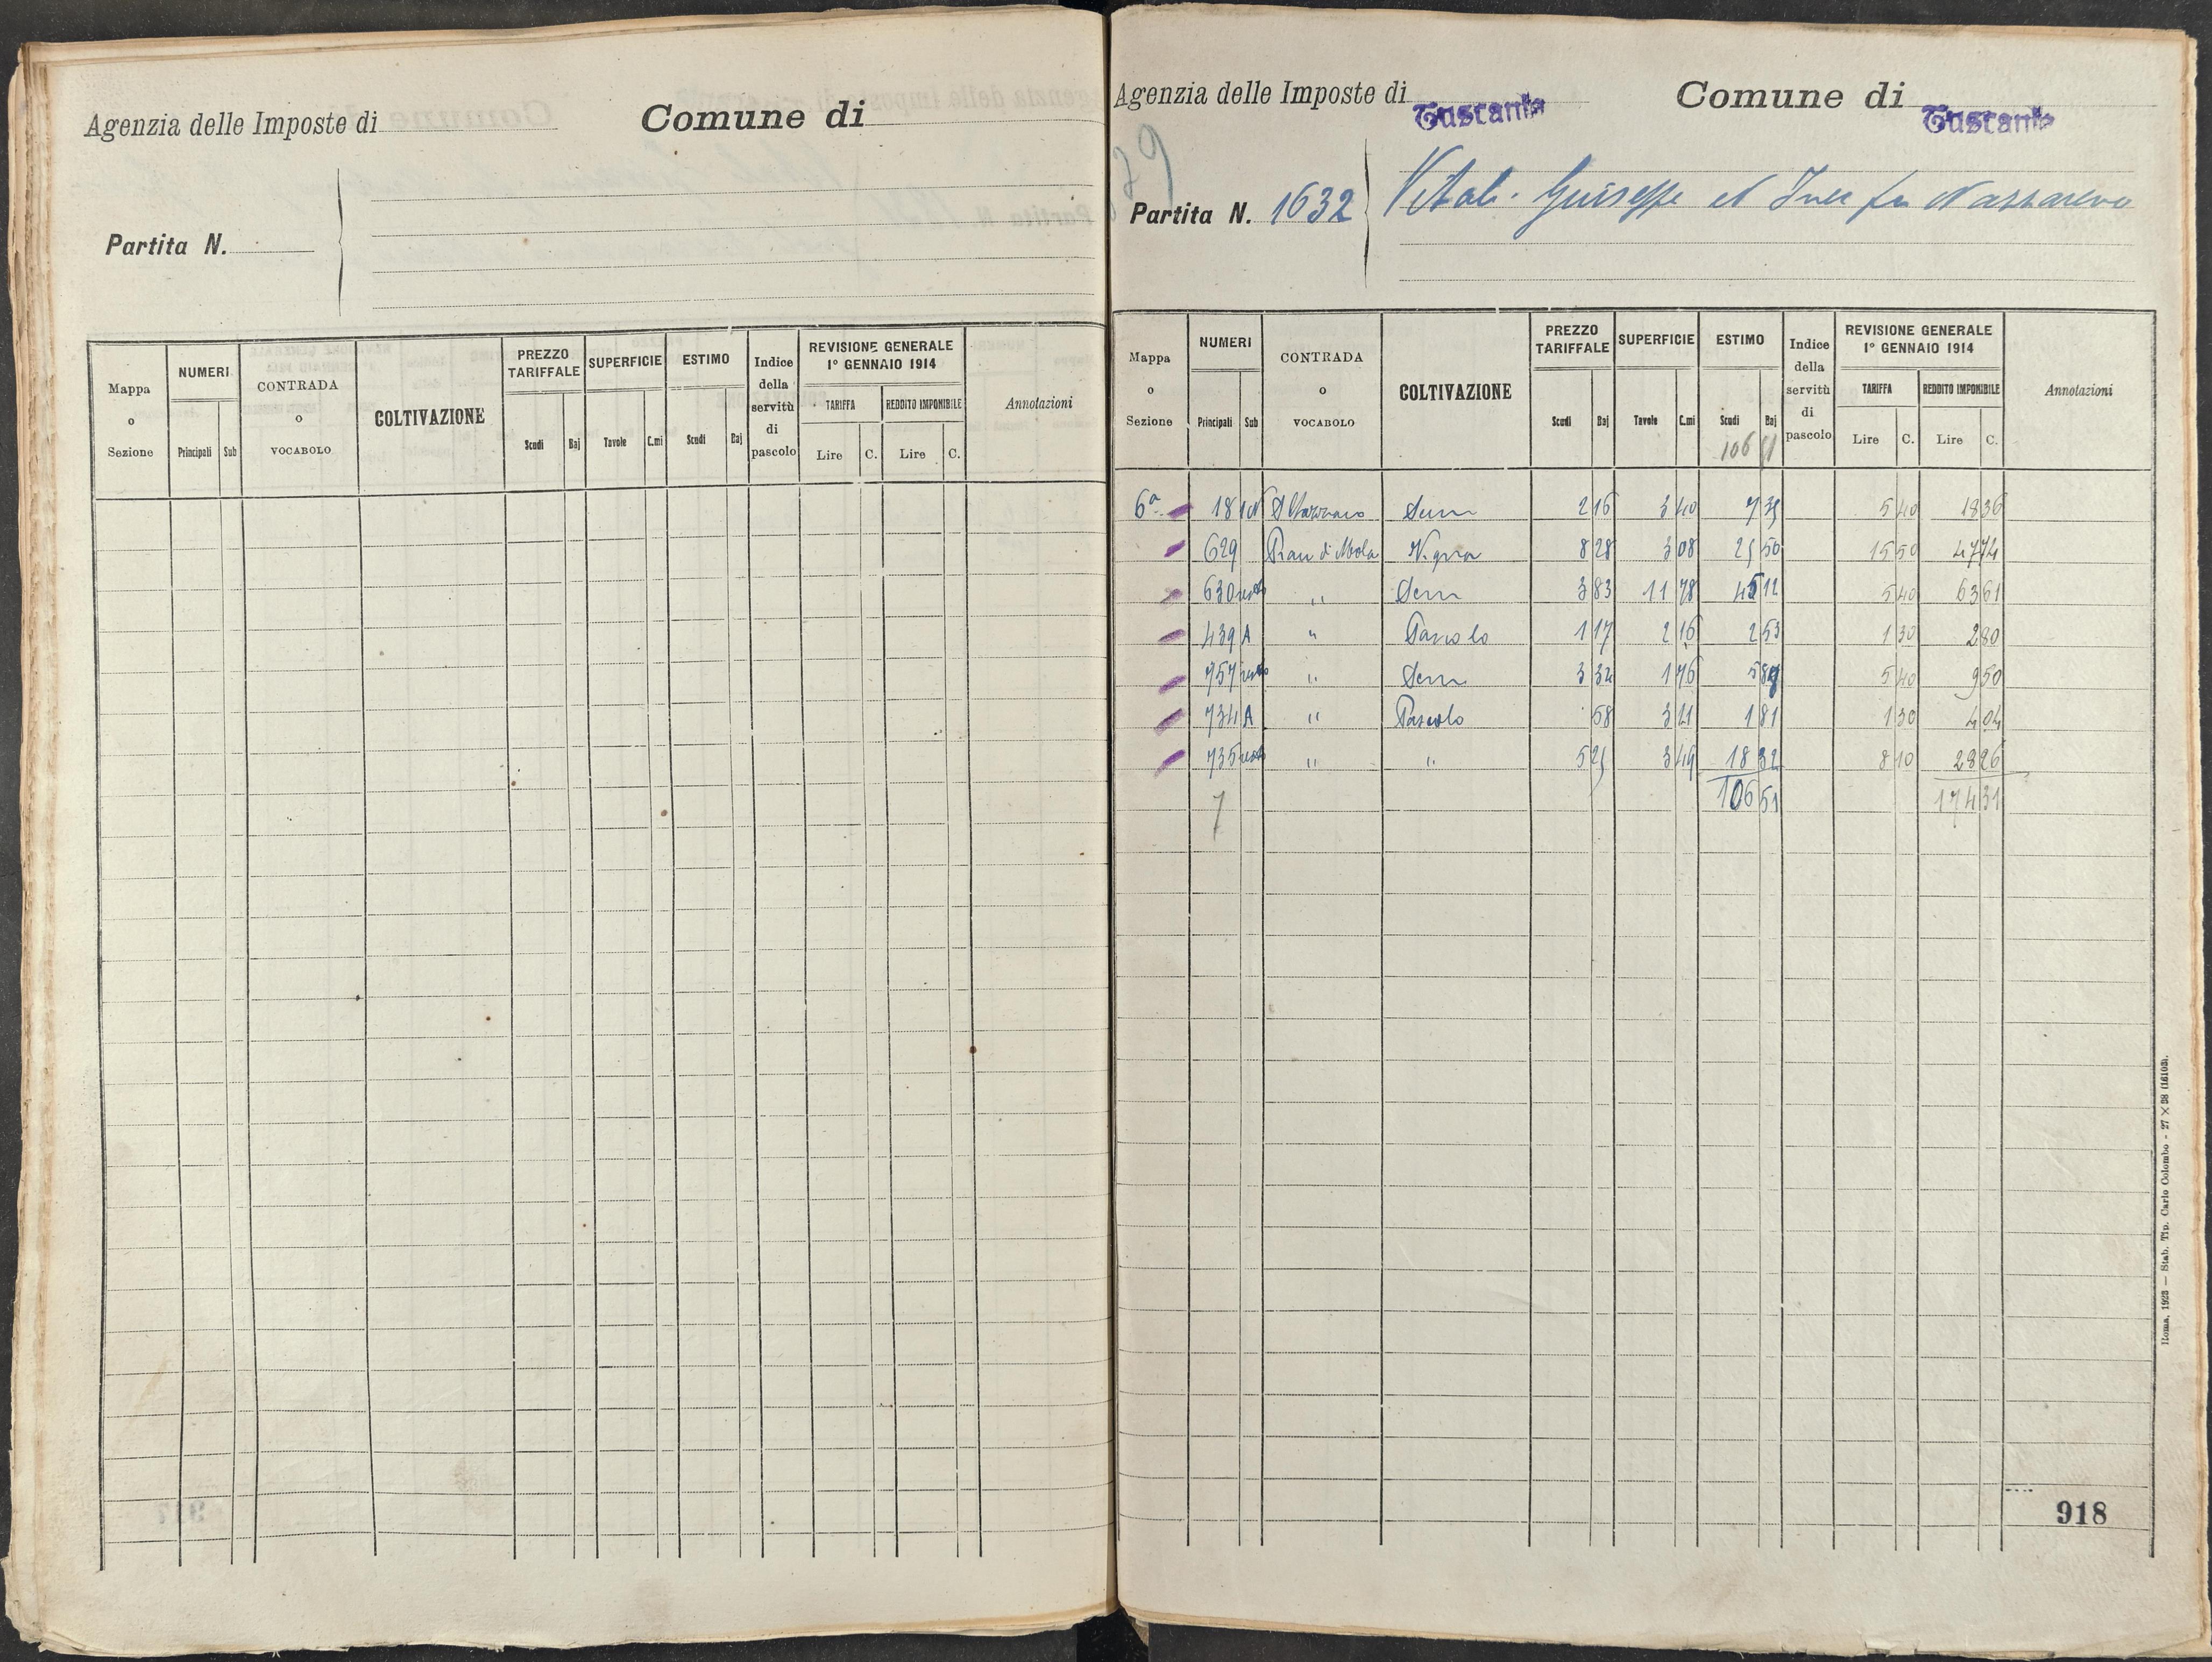 Agenzia delle Imposte di
Comune di
Partita N.
Mappa o Sezione
NUMERI
Principali Sub
CONTRADA o VOCABOLO
COLTIVAZIONE
PREZZO TARIFFALE
Scudi Baj
SUPERFICIE
Tavole C.mi
ESTIMO
Scudi Baj
Indice della servitù di pascolo
REVISIONE GENERALE
1° GENNAIO 1914
TARIFFA REDDITO IMPONIBILE
Lire C. Lire C.
Annotazioni
Agenzia delle Imposte di Tuscania
Comune di Tuscania
79
Partita N. 1632 Vitali Giuseppe ed Ines fu Nazzareno
Mappa o Sezione
NUMERI
Principali Sub
CONTRADA o VOCABOLO
COLTIVAZIONE
PREZZO TARIFFALE
Scudi Baj
SUPERFICIE
Tavole C.mi
ESTIMO
Scudi Baj
106 51
Indice della servitù di pascolo
REVISIONE GENERALE
1° GENNAIO 1914
TARIFFA REDDITO IMPONIBILE
Lire C. Lire C.
Annotazioni
6a 181 Sem 2 16 3 40 7 35 5 40 18 36
629 Pian di Mola Vigna 8 28 3 08 25 50 15 50 47 74
630 resto " Sem 3 83 11 78 45 12 5 40 63 61
439 A " Pascolo 1 17 2 16 2 53 1 30 2 80
757 resto " Sem 3 32 1 76 5 84 5 40 9 50
734 A " Pascolo 58 3 11 1 81 1 30 4 04
735 resto " " 5 25 3 49 18 32 8 10 28 26
7 106 51 174 31
918
Roma, 1923 — Stab. Tip. Carlo Colombo - 27 × 38 (16103).